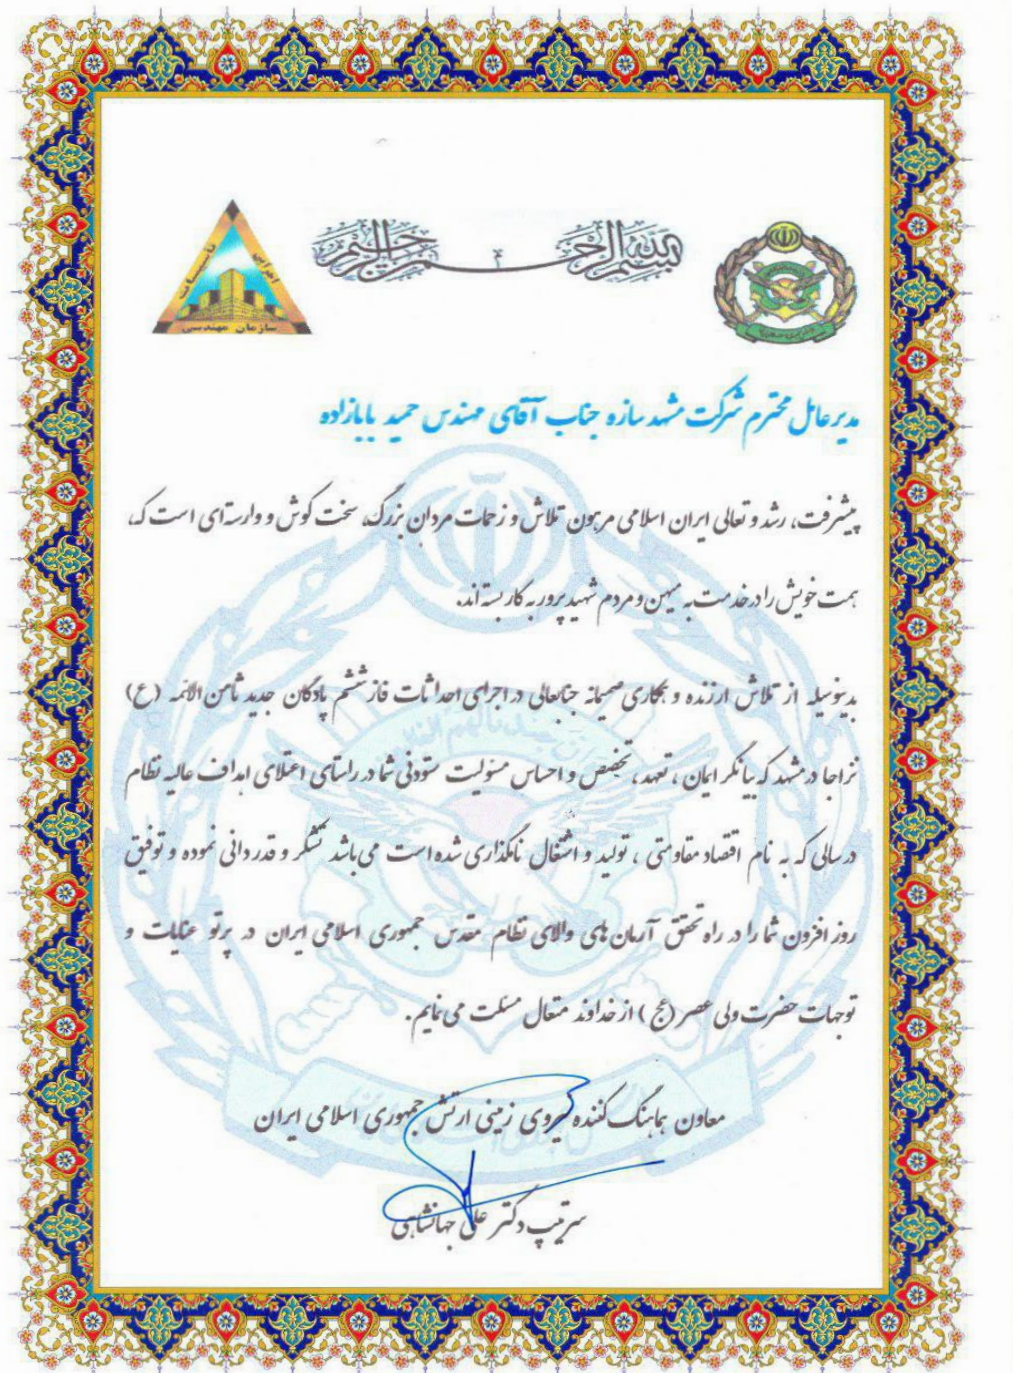 بسم الله الرحمن الرحیم
تاسیسات
اجرایی
سازمان مهندسی
مدیرعامل محترم شرکت مشهد سازه جناب آقای مهندس حمید بابازاده
پیشرفت، رشد و تعالی ایران اسلامی مرهون تلاش و زحمات مردان بزرگ، سخت کوش و وارسته‌ای است که،
همت خویش را در خدمت به میهن و مردم شهید پرور به کار بسته‌اند.
بدینوسیله از تلاش ارزنده و همکاری صمیمانه جنابعالی در اجرای احداثات فاز ششم پادگان جدید ثامن الائمه (ع)
نزاجا در مشهد که بیانگر ایمان ، تعهد ، تخصص و احساس مسئولیت ستودنی شما در راستای اعتلای اهداف عالیه نظام
در سالی که به نام اقتصاد مقاومتی ، تولید و اشتغال نامگذاری شده است می باشد تشکر و قدردانی نموده و توفیق
روز افزون شما را در راه تحقق آرمان های والای نظام مقدس جمهوری اسلامی ایران در پرتو عنایات و
توجهات حضرت ولی عصر (عج) از خداوند متعال مسئلت می نمایم.
معاون هماهنگ کننده نیروی زمینی ارتش جمهوری اسلامی ایران
سرتیپ دکتر علی جهانشاهی